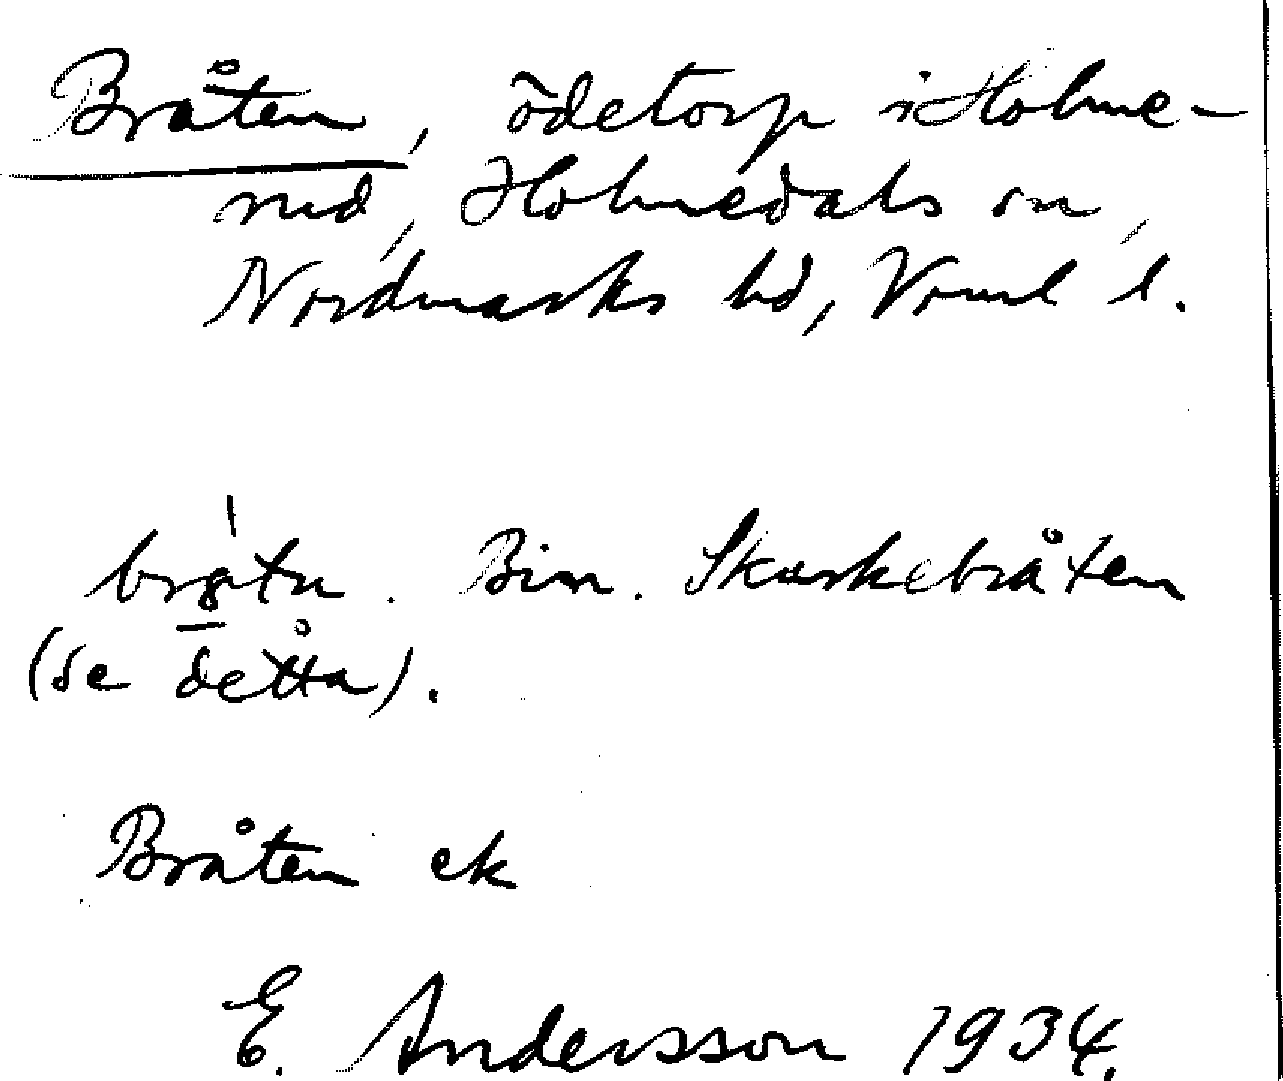 Bråten, ödetorp i Holme-
rud, Holmedals sn,
Nordmarks hd, Vrml l.
Bin. Skarkebråten
(se detta).
Bråten ek
E. Andersson 1934.